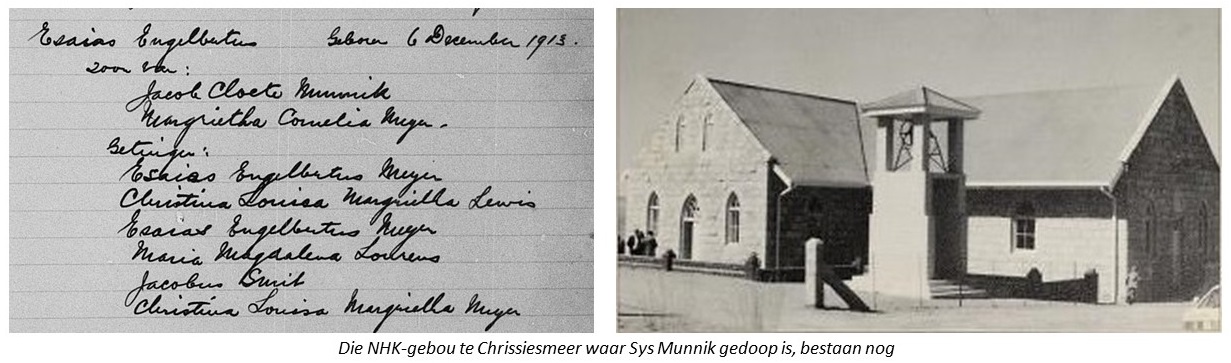 Esaias Engelbertus Geboren 6 December 1913.
zoon van:
Jacob Cloete Munnik
Margrietha Cornelia Meyer.
Getuigen:
Esaias Engelbertus Meyer
Christina Louisa Margrietha Lewis
Esaias Engelbertus Meyer
Maria Magdalena Lourens
Jacobus Smit
Christina Louisa Margrietha Meyer
Die NHK-gebou te Chrissiesmeer waar Sys Munnik gedoop is, bestaan nog